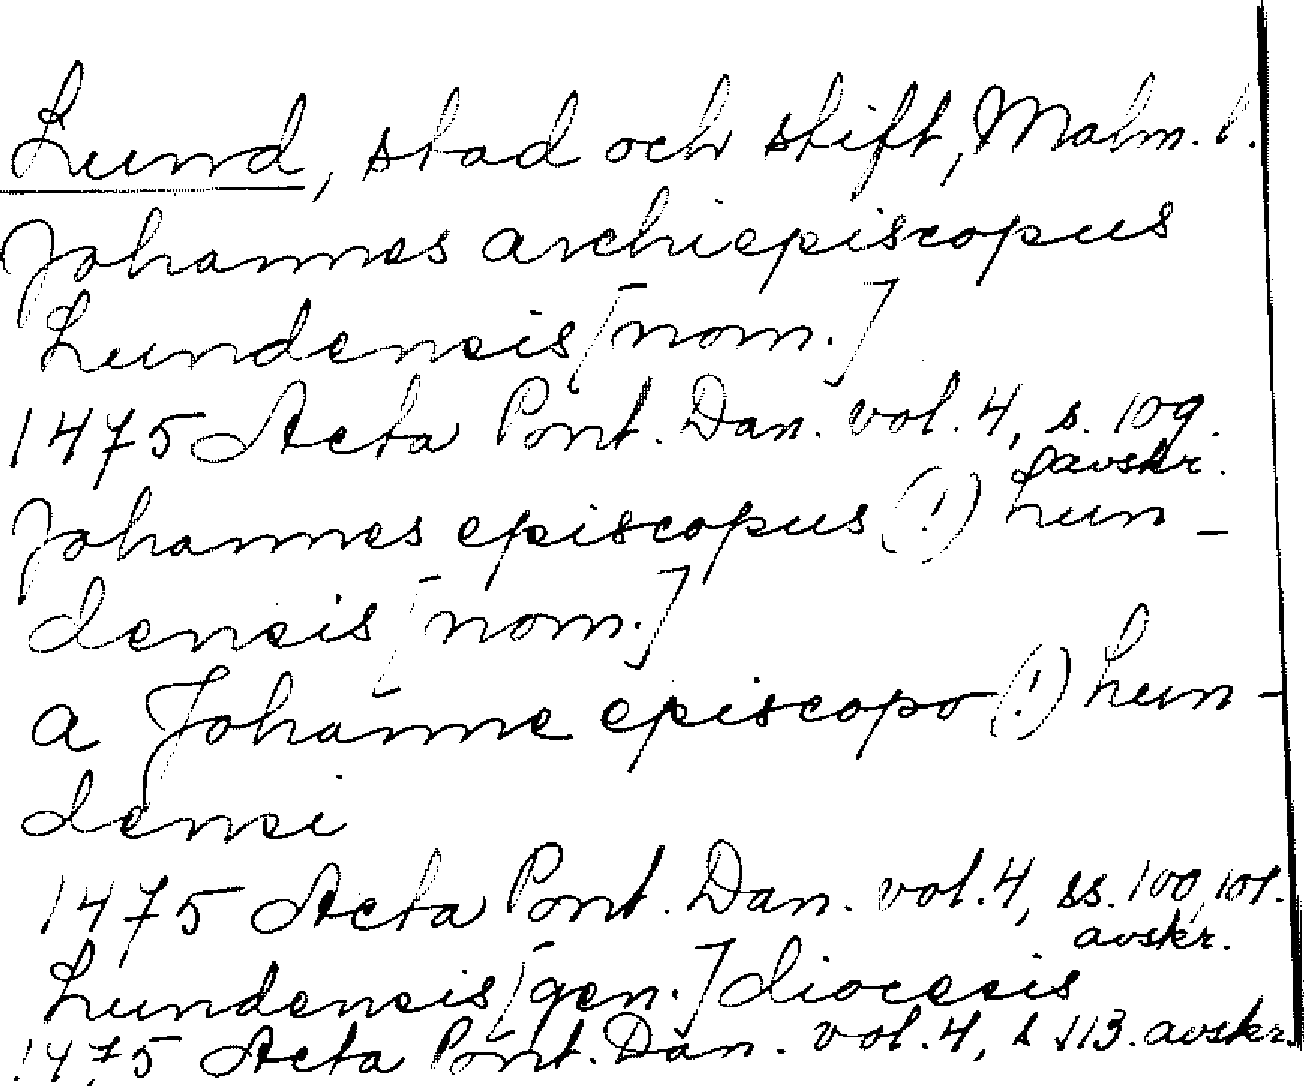 Lund, stad och stift, Malm. l.
Johannes archiepiscopus
Lundensis [nom.]
1475 Acta Pont. Dan. vol. 4, s. 109.
avskr.
Johannes episcopus (!) Lun-
densis [nom.]
a Johanne episcopo (!) Lun-
densi
1475 Acta Pont. Dan. vol. 4, ss. 100, 101.
avskr.
Lundensis [gen.] diocesis
1475 Acta Pont. Dan. vol. 4, s 113. avskr.